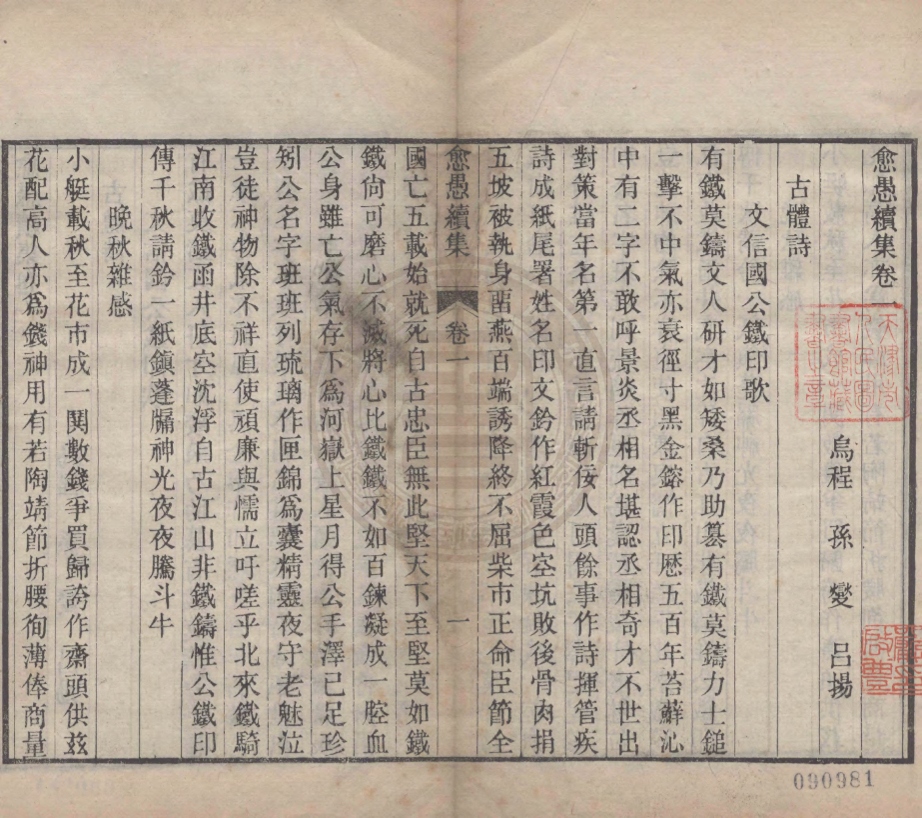 愈愚續集卷一
烏程 孫 燮 呂揚
古體詩
文信國公鐵印歌
有鐵莫鑄文人研才如矮桑乃助篡有鐵莫鑄力士鎚
一擊不中氣亦衰徑寸黑金鎔作印歷五百年苔蘚沁
中有二字不敢呼景炎丞相名堪認丞相奇才不世出
對策當年名第一直言請斬佞人頭餘事作詩揮管疾
詩成紙尾署姓名印文鈐作紅霞色空坑敗後骨肉捐
五坡被執身畱燕百端誘降終不屈柴市正命臣節全
愈愚續集 卷一 一
國亡五載始就死自古忠臣無此堅天下至堅莫如鐵
鐵尙可磨心不滅將心比鐵鐵不如百鍊凝成一腔血
公身雖亡公氣存下爲河嶽上星月得公手澤已足珍
矧公名字班班列琉璃作匣錦爲囊精靈夜守老魅泣
豈徒神物除不祥直使頑廉與懦立吁嗟乎北來鐵騎
江南收鐵函井底空沈浮自古江山非鐵鑄惟公鐵印
傳千秋請鈐一紙鎭蓬牖神光夜夜騰斗牛
晚秋雜感
小艇載秋至花市成一鬨數錢爭買歸誇作齋頭供茲
花配高人亦爲錢神用有若陶靖節折腰徇薄俸商量
天津市人民圖書館藏書之章
090981